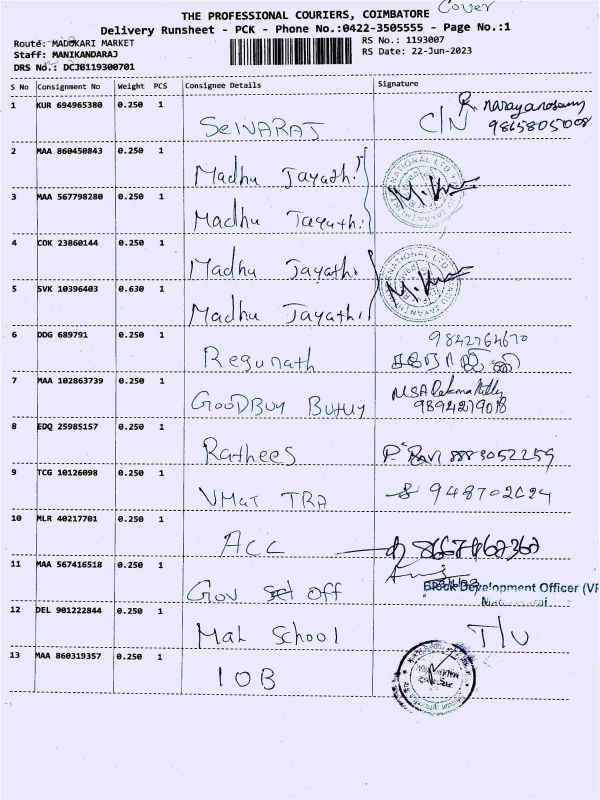 Cover
THE PROFESSIONAL COURIERS, COIMBATORE
Delivery Runsheet - PCK - Phone No.:0422-3505555 - Page No.:1
Route: MADUKARI MARKET
Staff: MANIKANDARAJ
DRS No.: DCJB119300701
RS No.: 1193007
RS Date: 22-Jun-2023
S No Consignment No Weight PCS Consignee Details Signature
1 KUR 694965380 0.250 1 SelVARAJ C/N R. narayanasamy 9865805008
2 MAA 860450843 0.250 1 Madhu Jayathi
3 MAA 567798280 0.250 1 Madhu Jayathi
4 COK 23860144 0.250 1 Madhu Jayathi
5 SVK 10396403 0.630 1 Madhu Jayathi
6 DDG 689791 0.250 1 Regunath 9842764670
7 MAA 102863739 0.250 1 GooDBuy 9894279018
8 EDQ 25985157 0.250 1 Rathees P. Ravi 8883052259
9 TCG 10126098 0.250 1 VMat TRA
10 MLR 40217701 0.250 1 ACC
11 MAA 567416518 0.250 1 Gov off Block Development Officer (VP
12 DEL 901222844 0.250 1 Mat School T/U
13 MAA 860319357 0.250 1 IOB